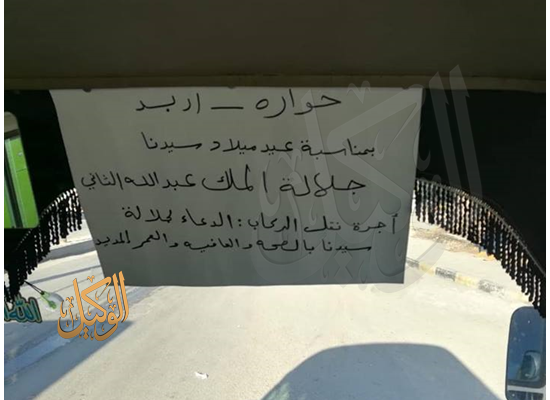 حواره - اربد
بمناسبة عيد ميلاد سيدنا
جلالة الملك عبدالله الثاني
أجرة نقل الركاب : الدعاء لجلالة
سيدنا بالصحه والعافيه والعمر المديد
الوكيل
الله